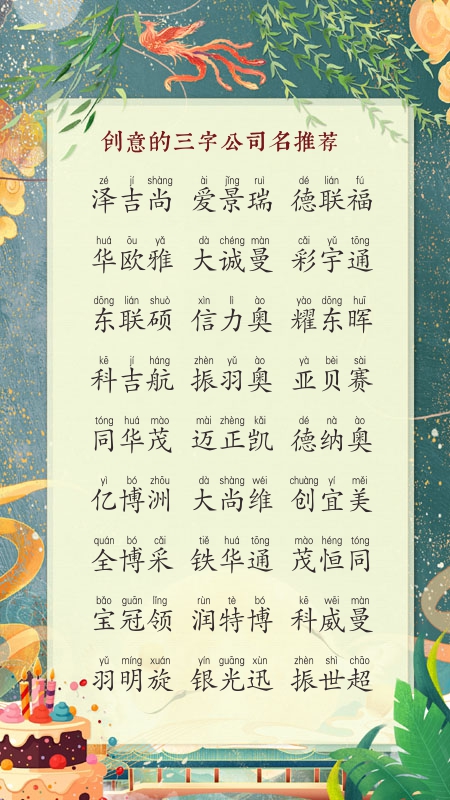 创意的三字公司名推荐
zé jí shàng ài jǐng ruì dé lián fú
泽吉尚 爱景瑞 德联福
huá ōu yǎ dà chéng màn cǎi yǔ tōng
华欧雅 大诚曼 彩宇通
dōng lián shuò xìn lì ào yào dōng huī
东联硕 信力奥 耀东晖
kē jí háng zhèn yǔ ào yà bèi sài
科吉航 振羽奥 亚贝赛
tóng huá mào mài zhèng kǎi dé nà ào
同华茂 迈正凯 德纳奥
yì bó zhōu dà shàng wéi chuàng yí měi
亿博洲 大尚维 创宜美
quán bó cǎi tiě huá tōng mào héng tóng
全博采 铁华通 茂恒同
bǎo guān lǐng rùn tè bó kē wēi màn
宝冠领 润特博 科威曼
yǔ míng xuán yín guāng xùn zhèn shì chāo
羽明旋 银光迅 振世超